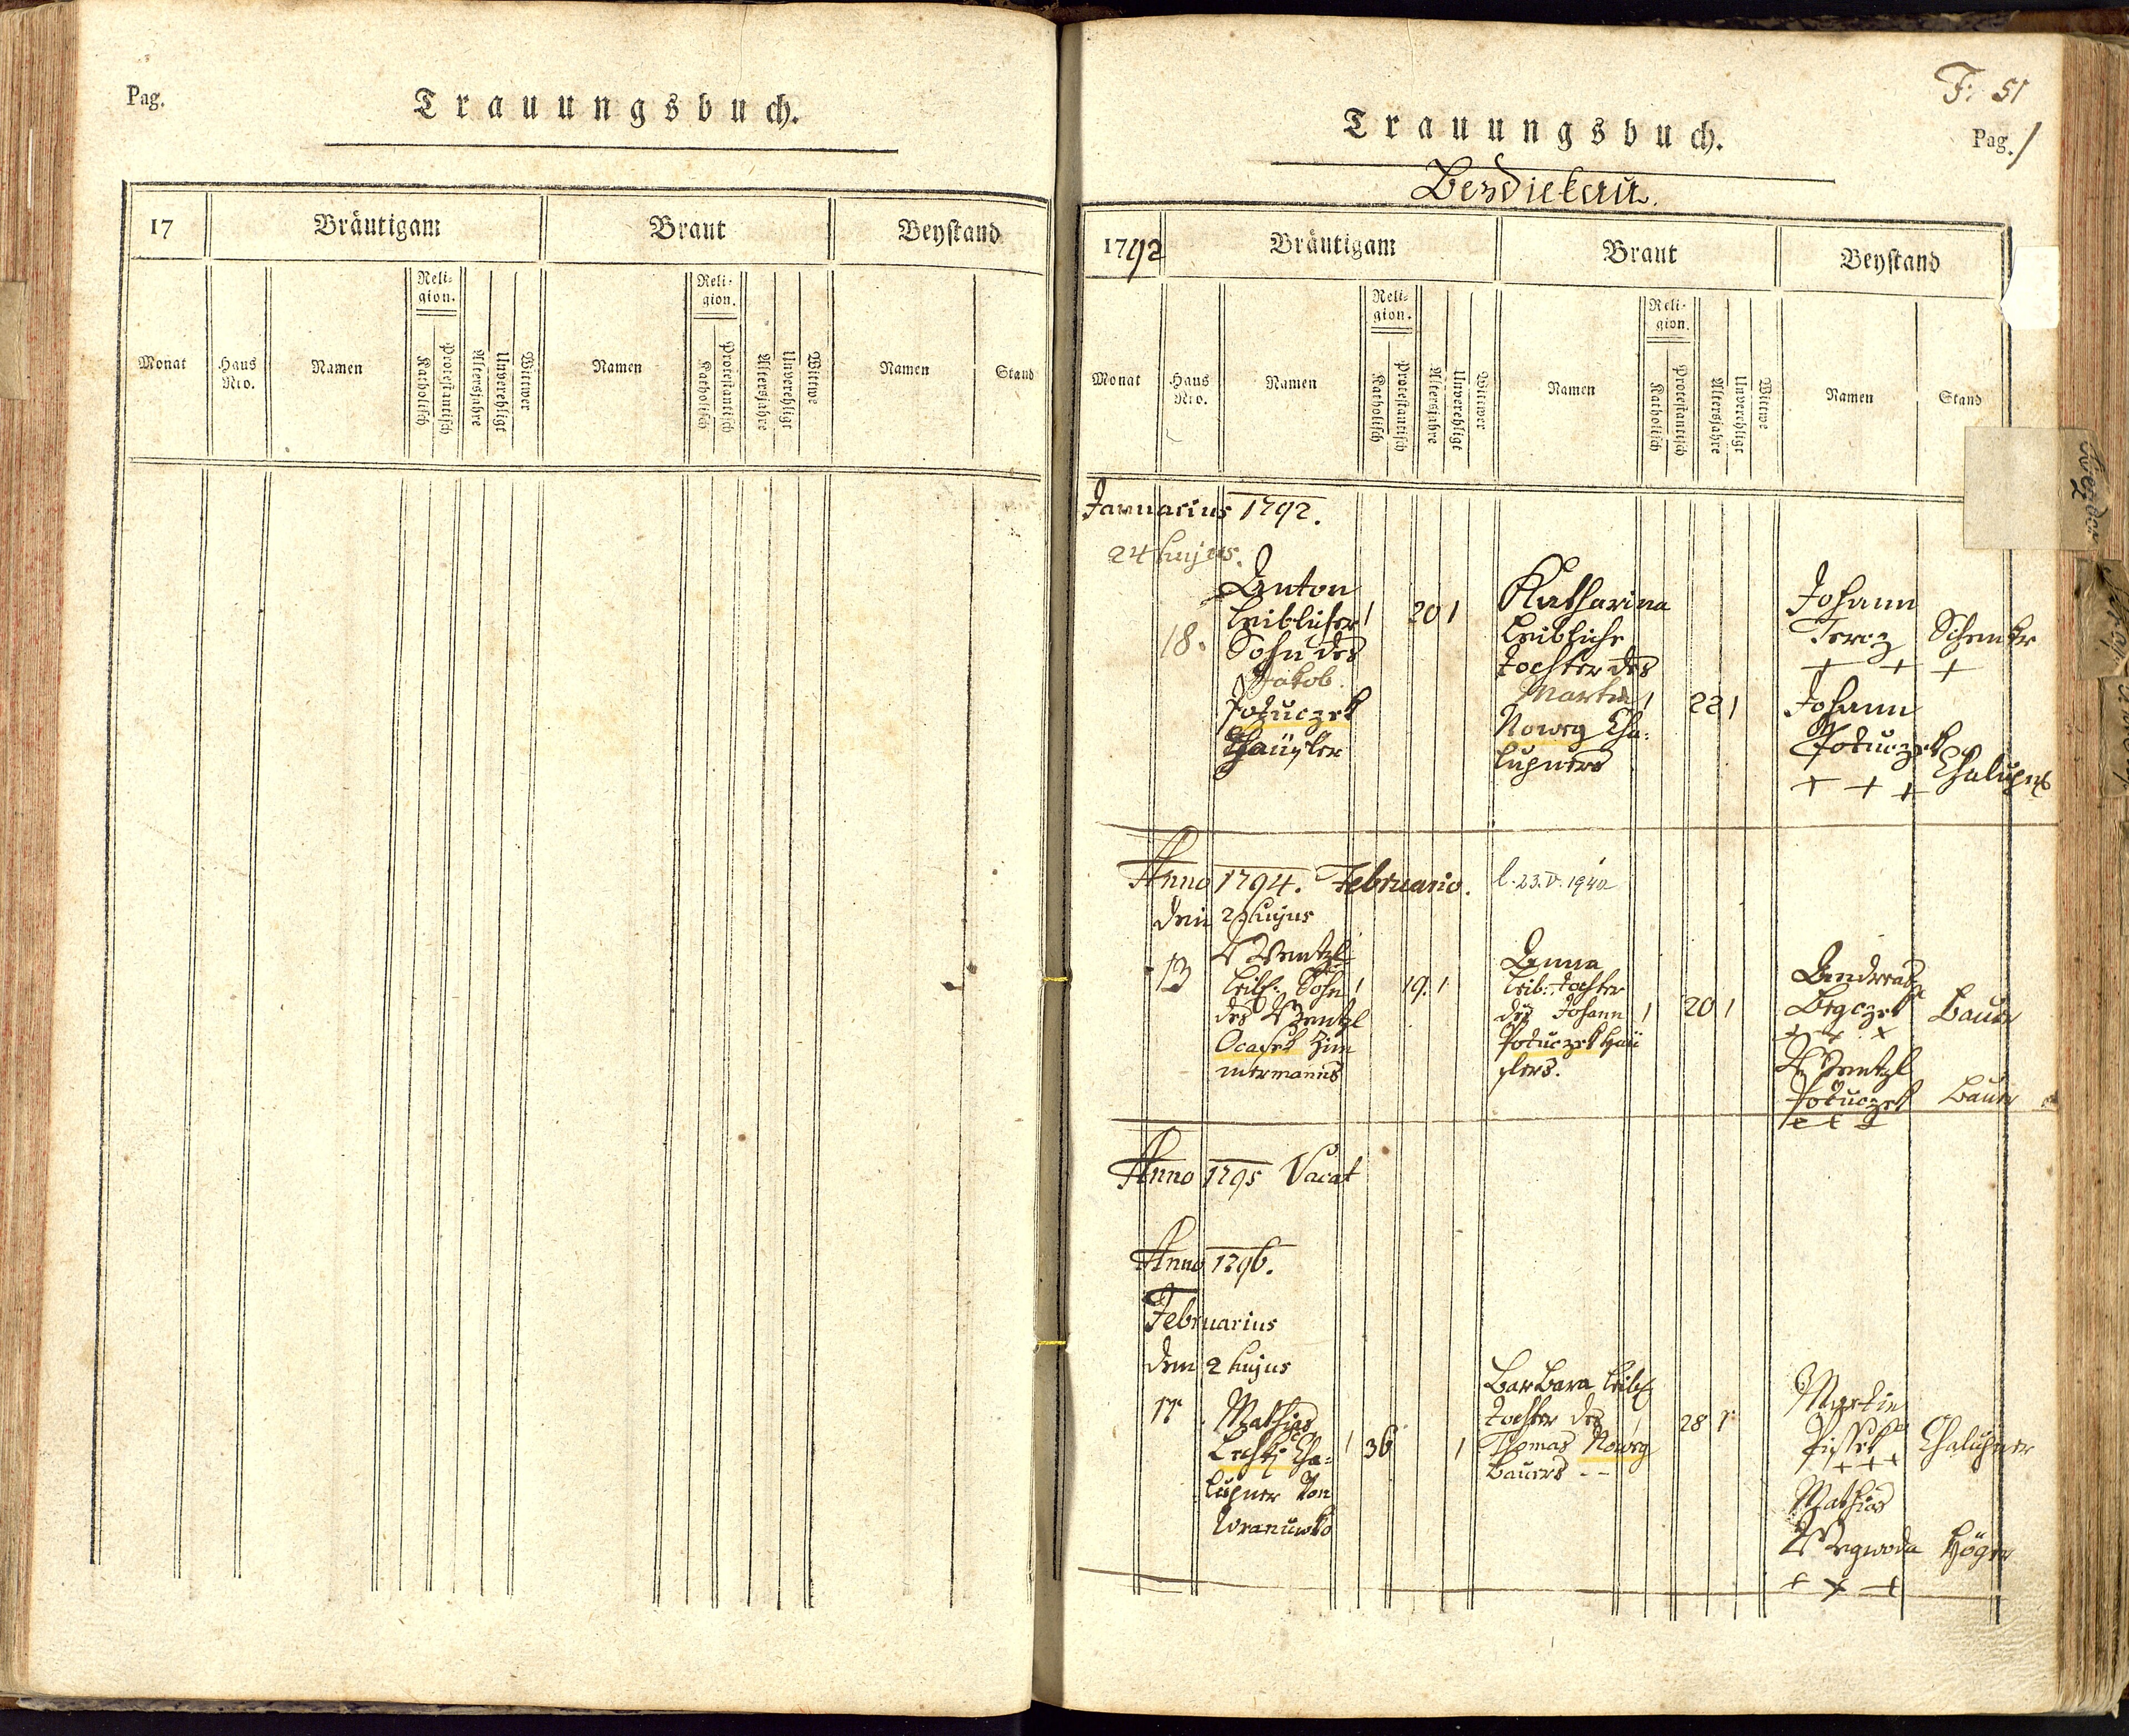 Pag.
Trauungsbuch.
17
Bräutigam
Braut
Beystand
Monat
Haus
Nro.
Namen
Reli-
gion.
Catholisch
Protestantisch
Altersjahre
Unverehligt
Wittwer
Namen
Reli-
gion.
Catholisch
Protestantisch
Altersjahre
Unverehligt
Wittwe
Namen
Stand
F: 51
Trauungsbuch.
Pag. 1
Bezdiekau.
1792
Bräutigam
Braut
Beystand
Monat
Haus
Nro.
Namen
Reli-
gion.
Catholisch
Protestantisch
Altersjahre
Unverehligt
Wittwer
Namen
Reli-
gion.
Catholisch
Protestantisch
Altersjahre
Unverehligt
Wittwe
Namen
Stand
Januarius 1792.
24 hujus.
18.
Anton
leiblicher
Sohn des
Jakob
Potuczek
Häußler
1 20 1
Katharina
leibliche
Tochter des
Martin
Nowey Cha-
lupners
1 22 1
Johann
Schenker
+ + +
Johann
Potuczek
Chalupner
+ + +
Anno 1794. Februario.
l. 23. V. 1942
den 2 hujus
13
Wentzl
leibl. Sohn
des Wentzl
Ocasek Zim
mermanns
1 19. 1
Anna
leib: Tochter
des Johann
Potuczek Häu
slers.
1 20 1
Andreas
Bauer
+ + x
Wentzl
Potuczek Bauer
Anno 1795 Vacat
Anno 1796.
Februarius
den 2 hujus
17
Mathias
Cha-
lupner von
Wranuwko
1 36 1
Barbara leibl.
Tochter des
Thomas Nowey
Bauers --
1 28 1
Martin
Chalupner
+ + +
Mathias
Weywoda Höger
+ x +